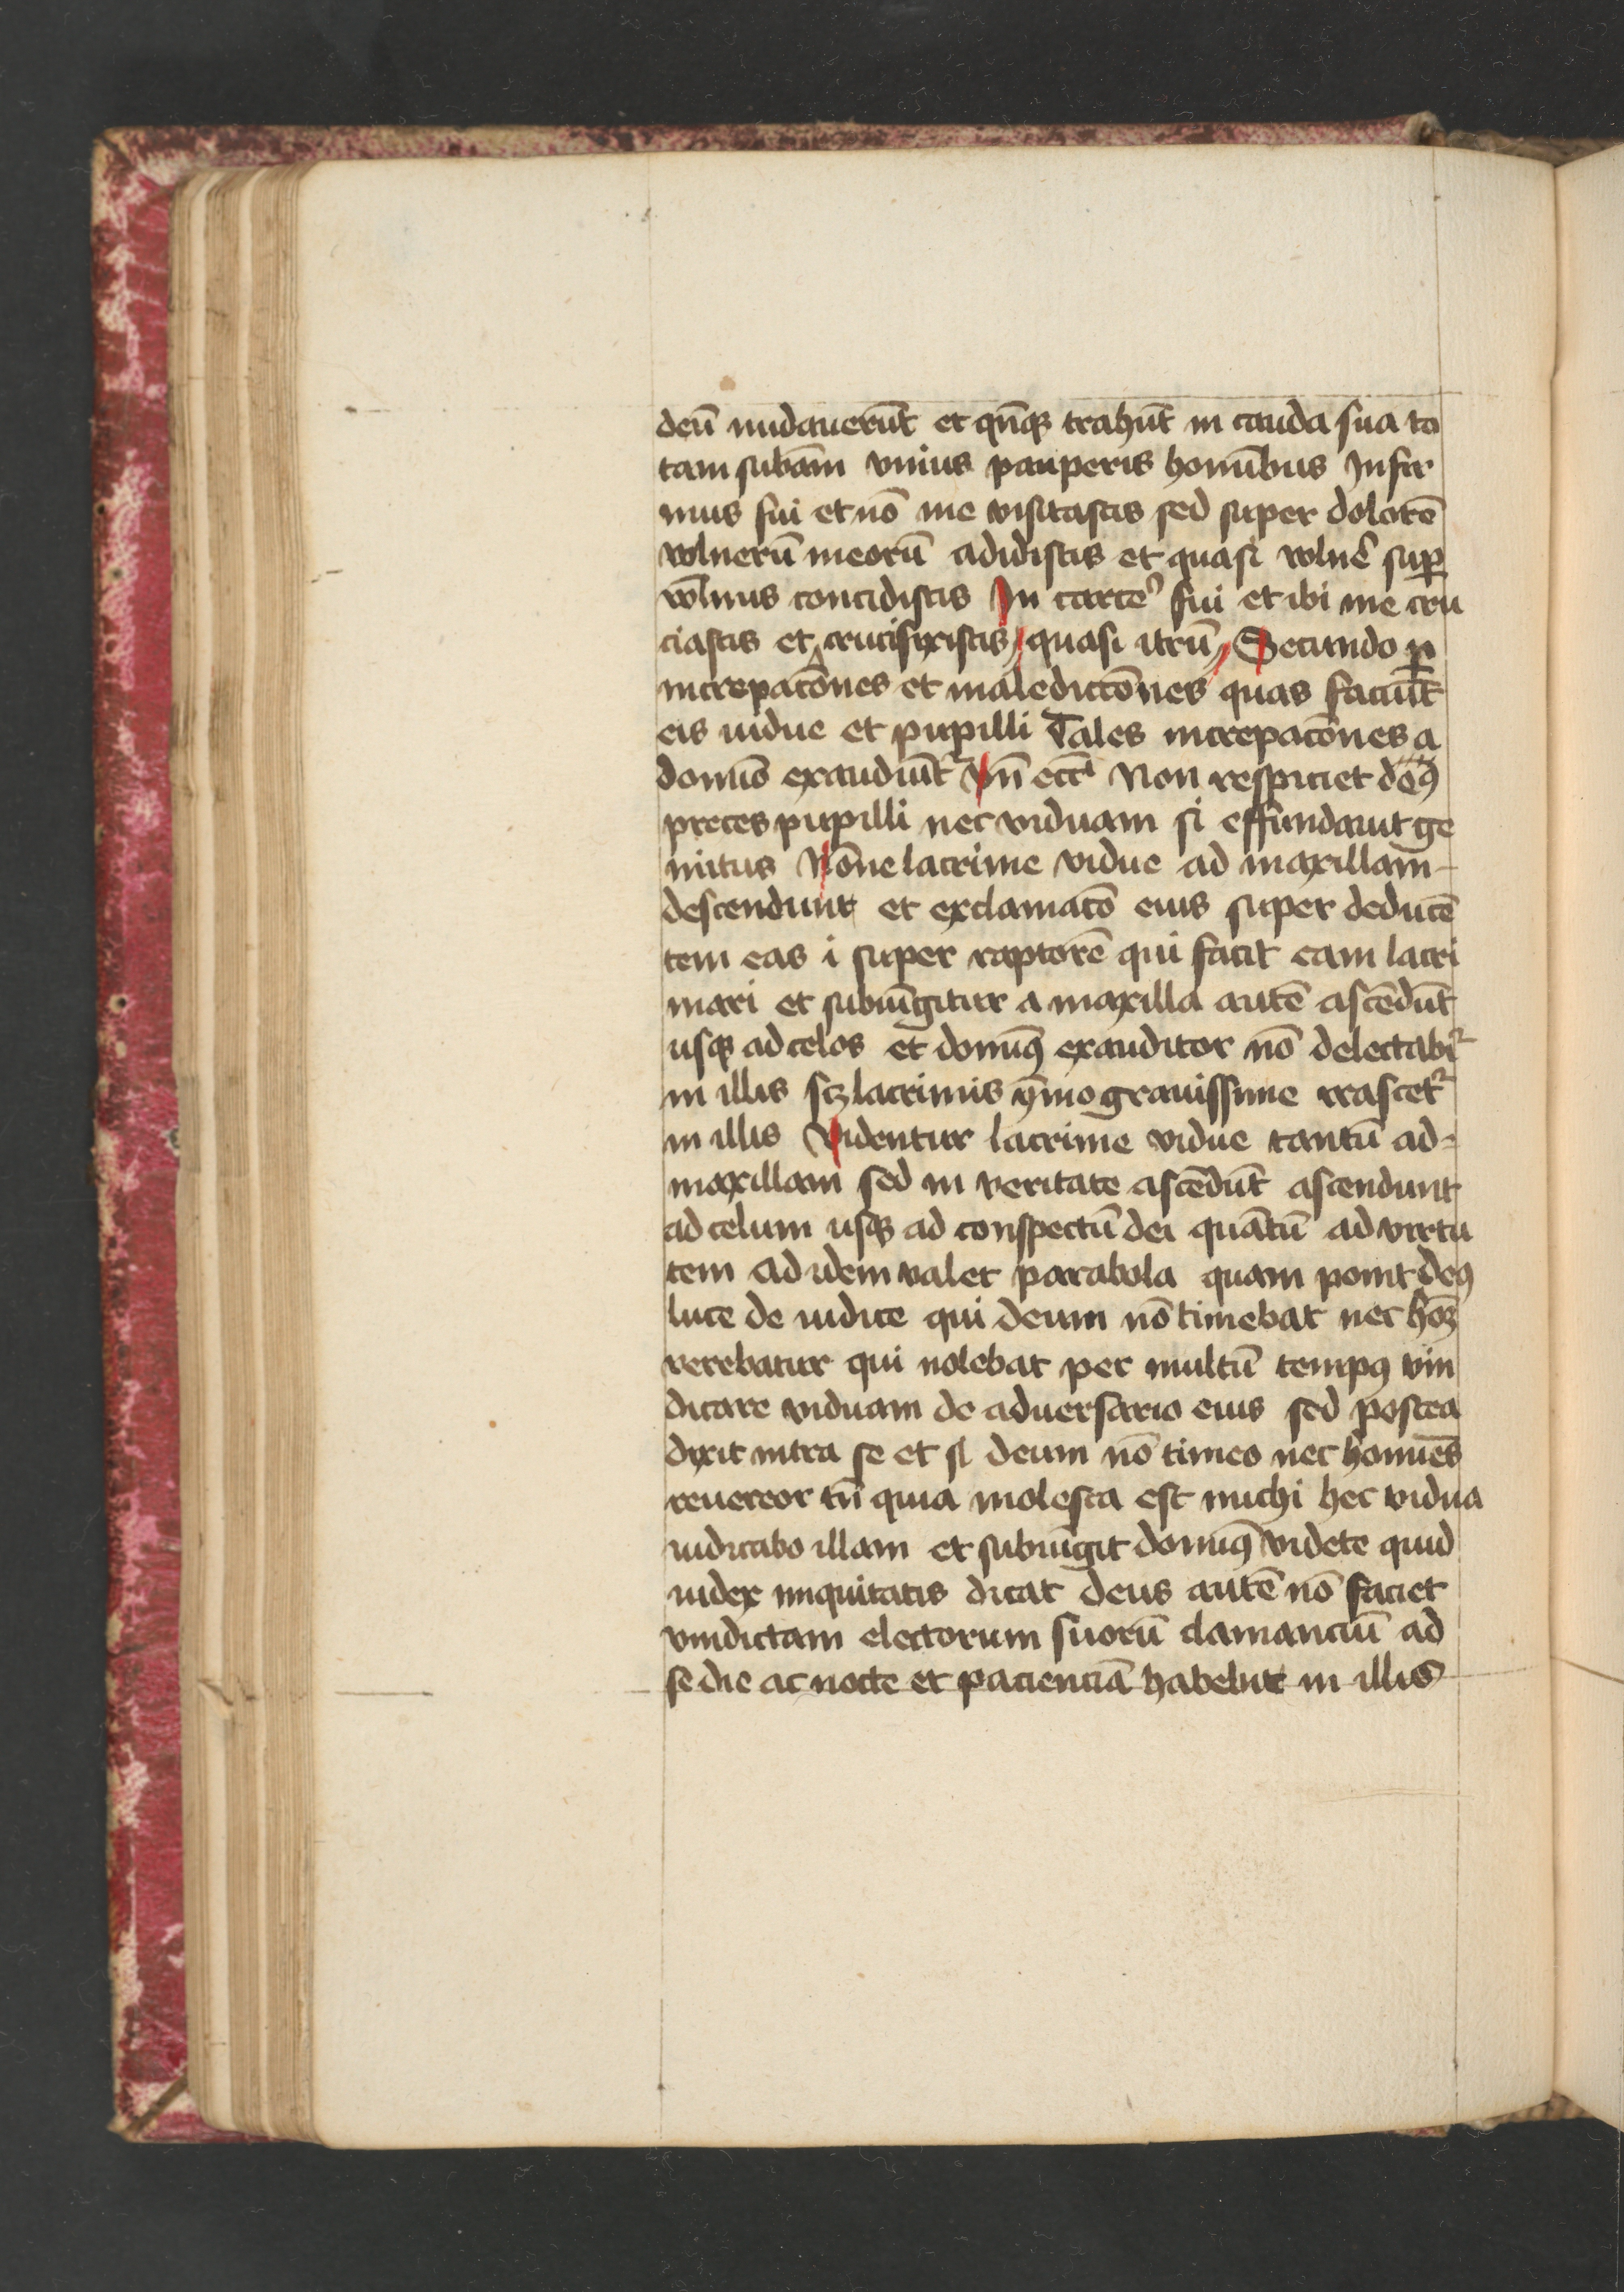 deū nudauerūt et qn̄qꝫ trahūt in cauda sua to
tam subām vnius pauperis honūbus Infir
mus fui et nō me visitastis sed super dolorē
volnerū meorū adidistis et quasi volnꝰ suꝑ
vōlnus concidistis In carceꝰ fui et ibi me cru
ciastis et crucifixistis quasi itrū Secundo ꝑ
increpacōnes et maledictōnes quas faciūt
eis uidue et pupilli Tales increpacōnes a
domīo exaudiūt᷑ Vn̄ eccī Non respiciet deꝰ
preces pupilli nec viduam si effundauit ge
mitus Nōne lacrime vidue ad maxillam
descendunt et exclamacō eius super deducē
tem eas i super raptorē qui facit eam lacri
mari et subiūgitur a maxilla autē ascēdūt
usqꝫ ad celos et domīꝰ exauditor nō delectabi᷑
in illis scꝫ lacrimis ẏmo grauissime irascet᷑
in illis Videntur lacrime vidue tantū ad
maxillam sed in veritate ascēdūt ascendunt
ad celum usqꝫ ad conspectū dei quātū ad virtu
tem Ad idem valet parabola quam ponit deꝰ
luce de iudice qui deum nō timebat nec hoīꝫ
verebatur qui nolebat per multū tempꝰ vin
dicare viduam de aduersario eius sed postea
dixit intra se et sī deum nō timeo nec homīes
reuereor tn̄ quia molesta est michi hec vidua
iudicabo illam et subiūgit domīꝰ videte quid
iudex iniquitatis dicat deus autē nō faciet
vindictam electorum suorū clamanciū ad
se die ac nocte et pacienciā habebit in illis